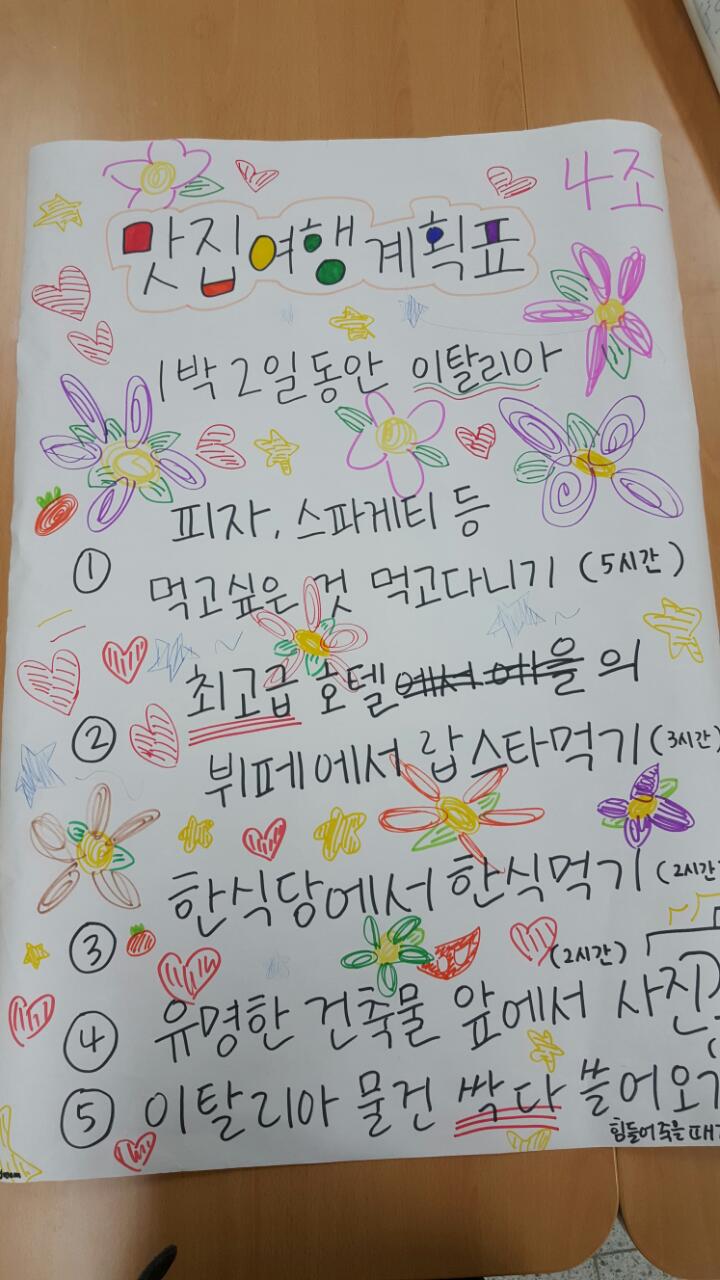 4조
맛집여행계획표
1박2일동안 이탈리아
피자, 스파게티 등
① 먹고싶은 것 먹고다니기 (5시간)
② 최고급 호텔에서 애을 의
뷔페에서 랍스타먹기 (3시간)
③ 한식당에서 한식먹기 (2시간)
(2시간)
④ 유명한 건축물 앞에서 사진
⑤ 이탈리아 물건 싹다 쓸어오기
힘들어죽을때